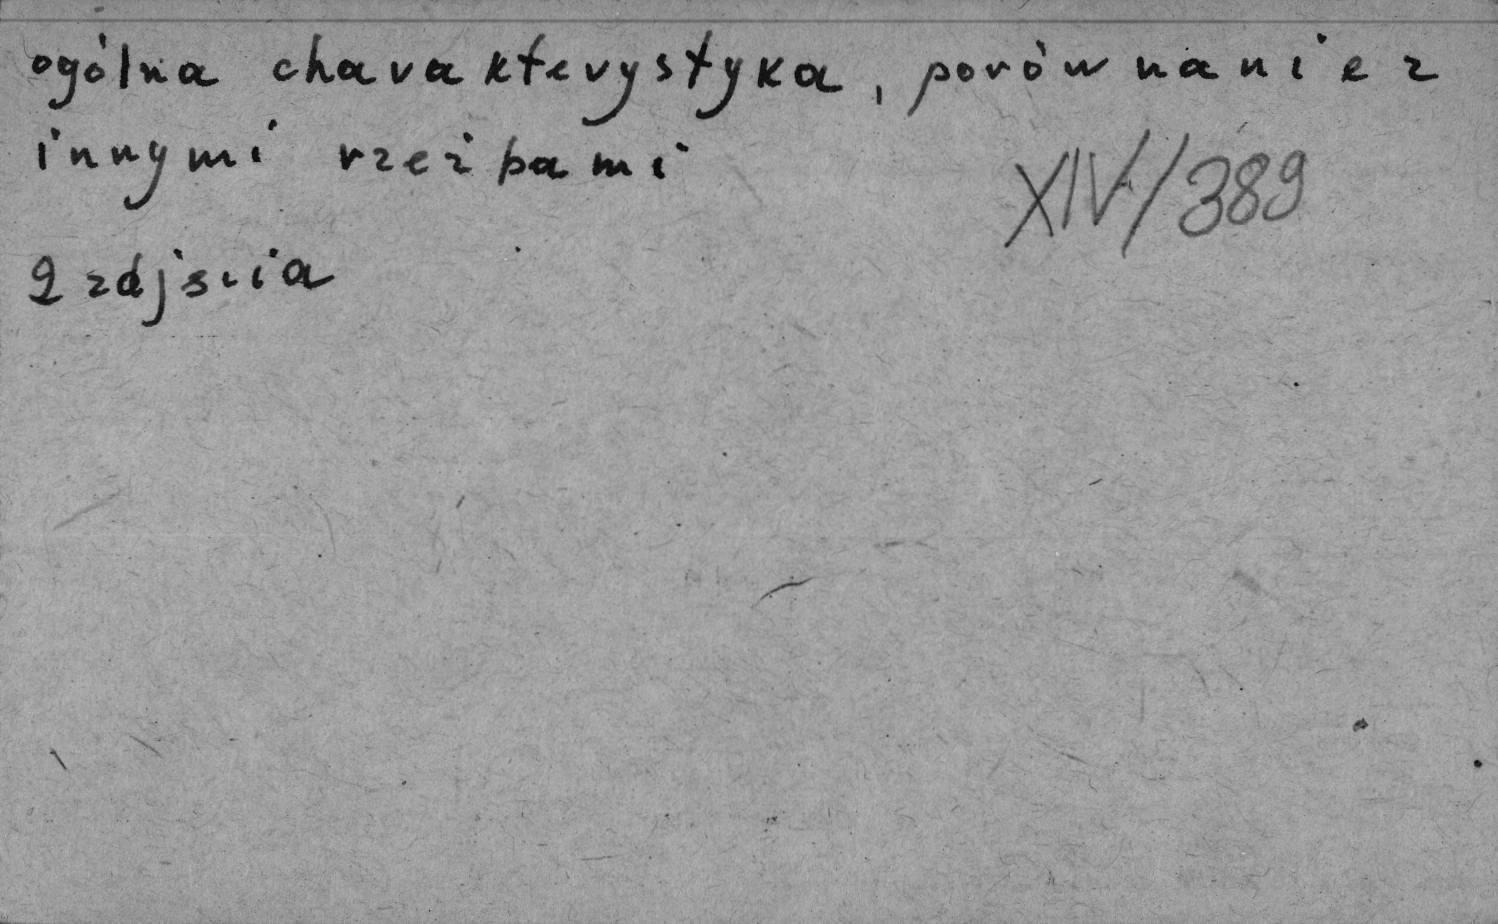 ogólna charakterystyka, porównanie z
innymi rzeźbami
XIV/389
2 zdjścia